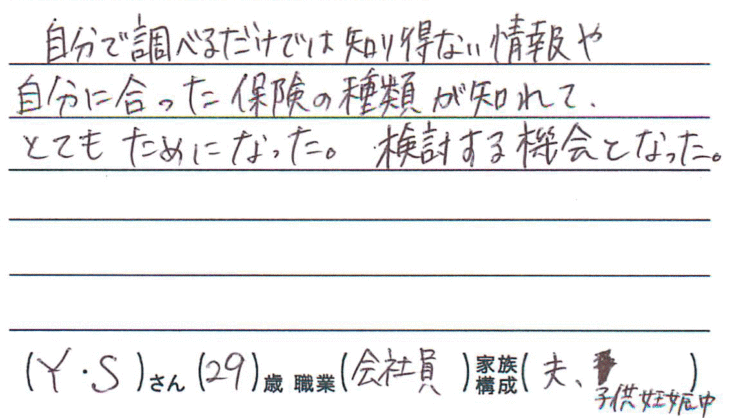 自分で調べるだけでは知り得ない情報や
自分に合った保険の種類が知れて、
とてもためになった。検討する機会となった。
(Y・S)さん(29)歳 職業(会社員)家族構成(夫、)
子供妊娠中